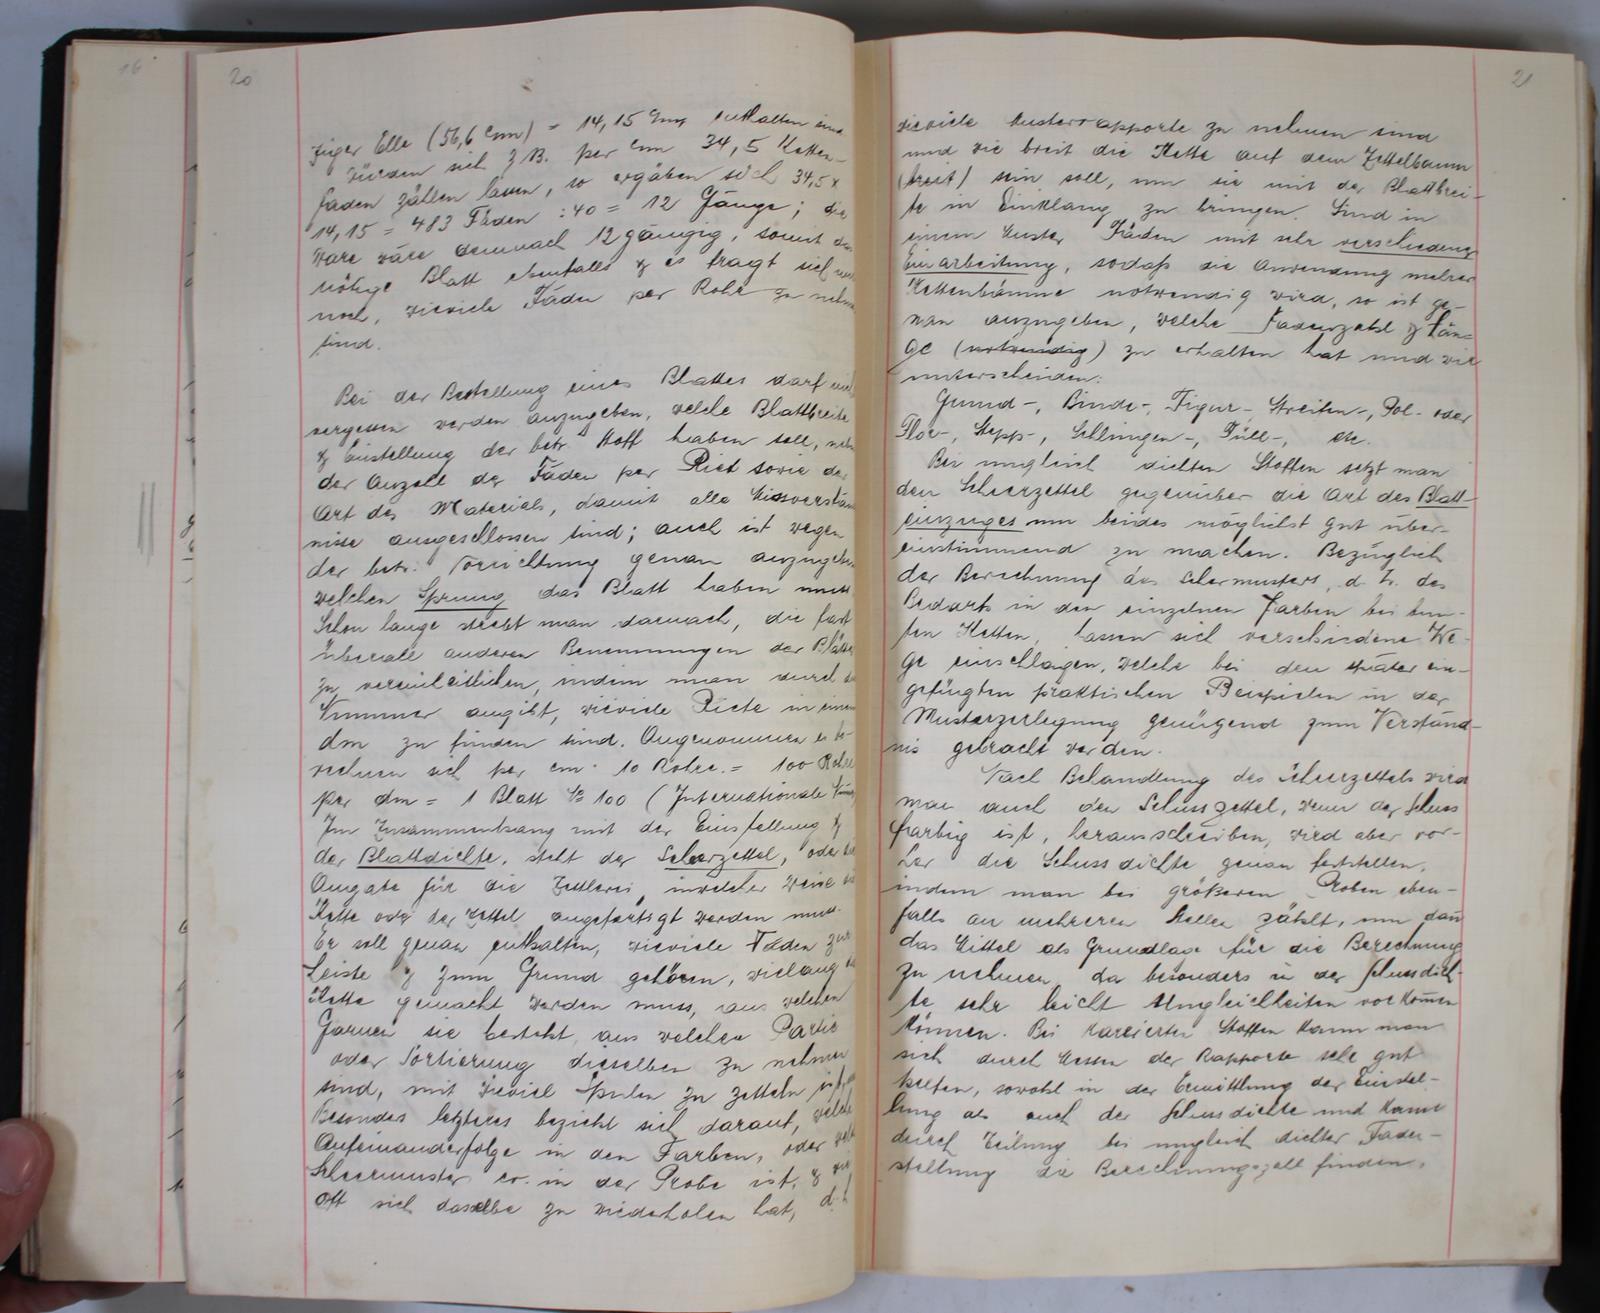 16
20
ziger Elle (56,6 cm) = 14,15 cm enthalten sind
würden sich z B. per cm 34,5 Ketten-
faden zählen lassen, so ergäben sich 34,5 x
14,15 = 483 Fäden : 40 = 12 Gänge; die
Ware wäre demnach 12 gängig, somit das
nötige Blatt ebenfalls & es fragt sich nur
noch, wieviele Fäden per Rohr zu nehmen
sind.
Bei der Bestellung eines Blattes darf nicht
vergessen werden anzugeben, welche Blattbreite
& Einstellung der betr. Stoff haben soll, neben
der Anzahl der Fäden per Riet sowie der
Art des Materials, damit alle Missverständ
nisse ausgeschlossen sind; auch ist wegen
der betr. Vorrichtung genau anzugeben
welchen Sprung das Blatt haben muss
Schon lange strebt man darnach, die fast
überall anderen Benennungen der Blätter
zu vereinheitlichen, indem man durch die
Nummer angibt, wieviele Riete in einem
dm zu finden sind. Angenommen es be-
rechnen sich per cm 10 Rohre = 100 Rohre
per dm = 1 Blatt № 100 (Internationale
Im Zusammenhang mit der Einstellung &
der Blattdichte, steht der Scheerzettel, oder die
Angabe für die Zettlerei, in welcher Weise die
Kette oder der Zettel angefertigt werden muss.
Er soll genau enthalten, wieviele Fäden zur
Leiste & zum Grund gehören, wielang die
Kette gemacht werden muss, aus welchen
Garnen sie besteht, aus welchen Partie
oder Sortierung dieselben zu nehmen
sind, mit wieviel Spulen zu zetteln ist,
Besonders letzteres bezieht sich darauf, welche
Aufeinanderfolge in den Farben, oder welch
Scheermuster er in der Probe ist, & wie
oft sich dasselbe zu wiederholen hat, d. h
21
wieviele Musterrapporte zu nehmen sind
und wie breit die Kette auf dem Zettelbaum
(breit) sein soll, um sie mit der Blattbrei-
te in Einklang zu bringen. Sind in
einem Muster Fäden mit sehr verschiedener
Einarbeitung, sodaß die Anwendung mehrer
Kettenbäume notwendig wird, so ist ge-
nau anzugeben, welche Fadenzahl & Län-
ge (notwendig) zu erhalten hat und wir
unterscheiden:
Grund-, Binde-, Figur-, Streifen-, Pol- oder
Flor-, Stepp-, Schlingen-, Füll-, etc.
Bei ungleich dichten Stoffen setzt man
den Scheerzettel gegenüber die Art des Blatt-
einzuges um beides möglichst gut über-
einstimmend zu machen. Bezüglich
der Berechnung des Schermusters, d. h. des
Bedarfs in den einzelnen Farben bei bun-
ten Ketten, lassen sich verschiedene We-
ge einschlagen, welche bei den später ein-
gefügten praktischen Beispielen in der
Musterzerlegung genügend zum Verständ-
nis gebracht werden.
Nach Behandlung des Scheerzettels wird
man auch den Schusszettel, wenn der Schuss
farbig ist, herausschreiben, wird aber vor-
her die Schussdichte genau feststellen,
indem man bei größeren Proben eben-
falls an mehreren Stellen zählt, um dan
das Mittel als Grundlage für die Berechnung
zu nehmen, da besonders in der Schussdich-
te sehr leicht Ungleichheiten vorkom̄en
können. Bei karierten Stoffen kann man
sich durch Messen der Rapporte sehr gut
helfen, sowohl in der Ermittlung der Einstel-
lung als auch der Schussdichte und kann
durch Teilung bei ungleich dichter Faden-
stellung die Berechnungszahl finden.